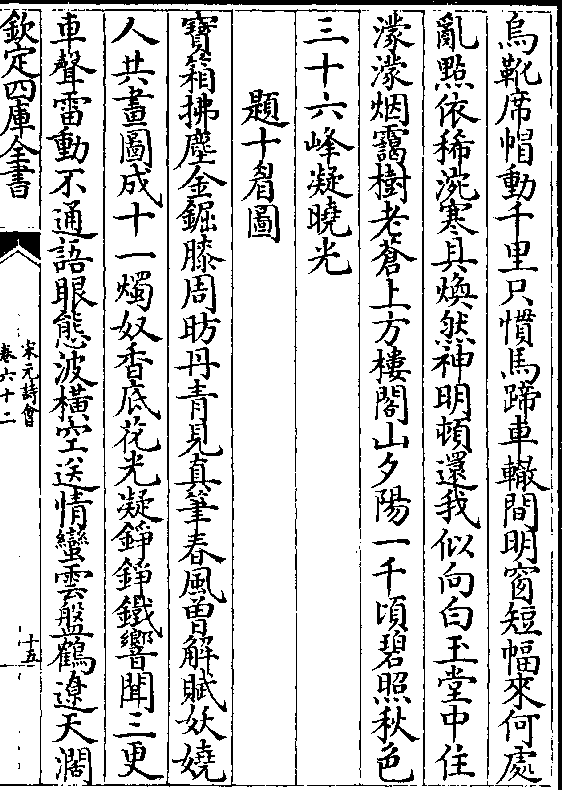 烏靴席帽動千里只慣馬蹄車轍間明窗短幅來何處
亂點依稀涴寒具煥然神明頓還我似向白玉堂中住
濛濛烟靄樹老蒼上方樓閣山夕陽一千頃碧照秋色
三十六峰凝曉光
題十眉圖
寶箱拂塵金鋸膝周昉丹青見真筆春風曽解賦妖嬈
人共畫圖成十一燭奴香底花光凝錚錚鐵響聞三更
車聲雷動不通語眼態波橫空送情蠻雲盤鶴遼天濶
欽定四庫全書
宋元詩會
卷六十二
十五